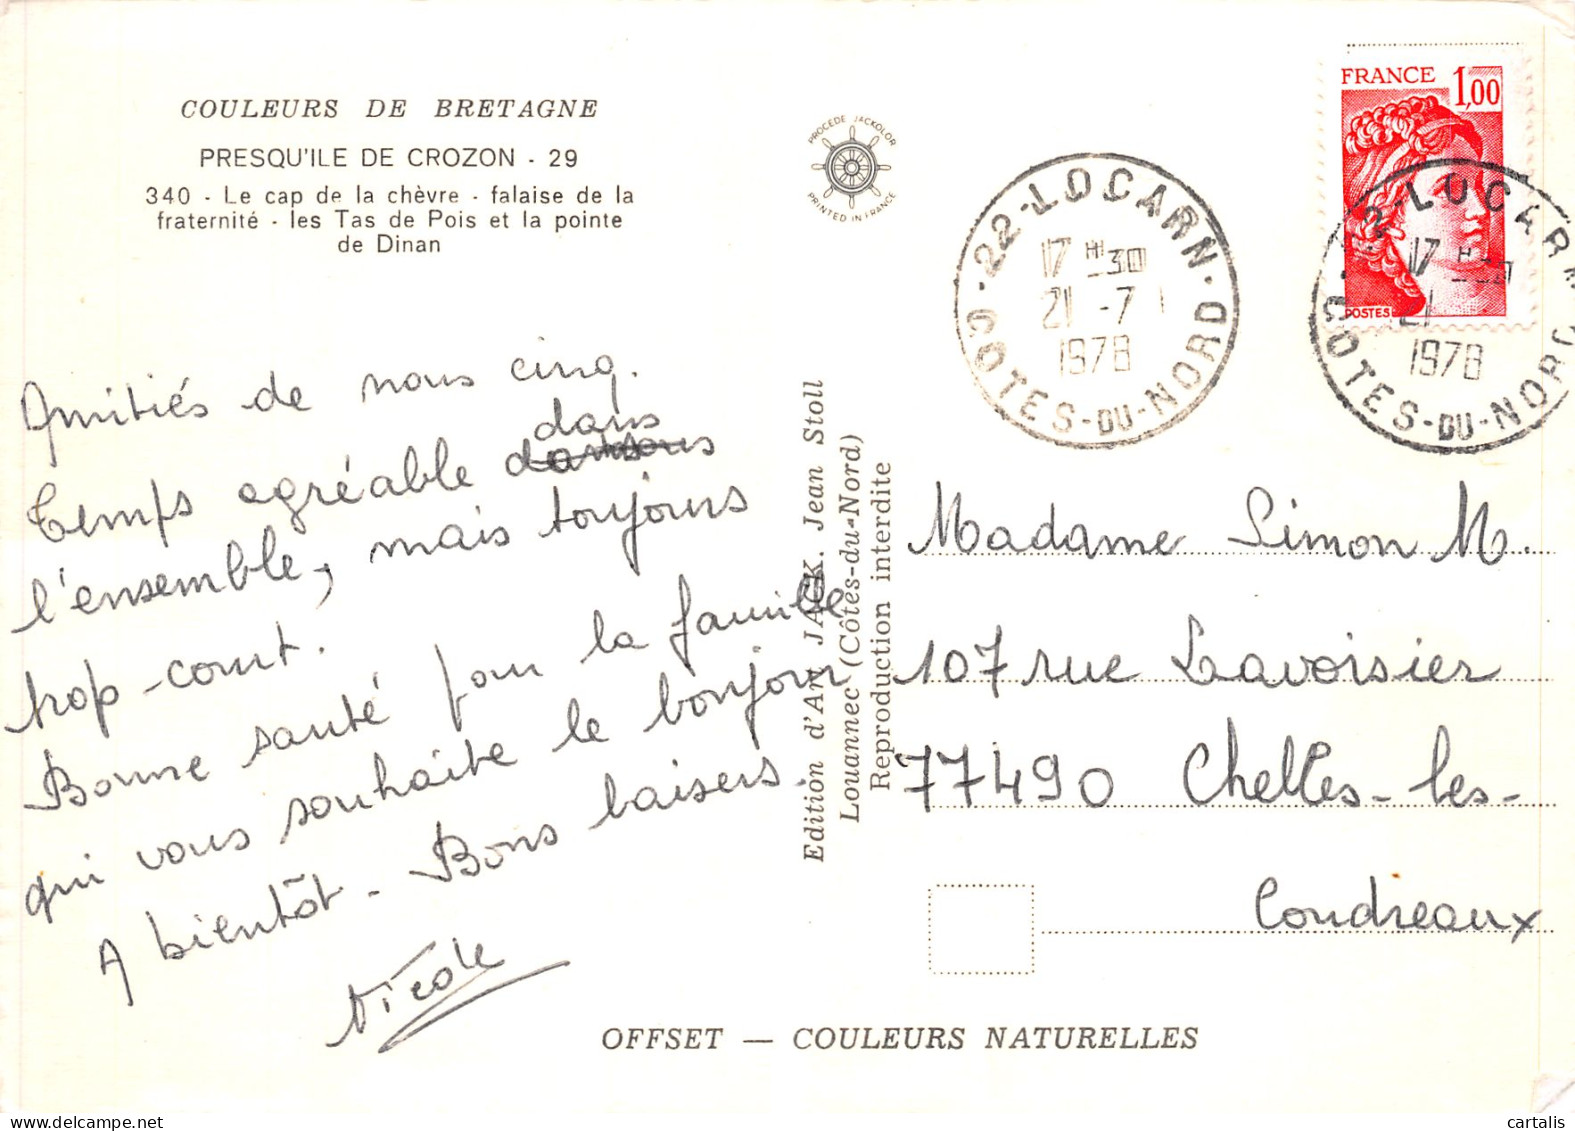 COULEURS DE BRETAGNE
PRESQU'ILE DE CROZON - 29
340 - Le cap de la chèvre - falaise de la
fraternité - les Tas de Pois et la pointe
de Dinan
PROCEDE JACKOLOR
PRINTED IN FRANCE
FRANCE 1,00
POSTES
22-LOCARN
17 H-30
21 -7
1978
COTES-DU-NORD
22-LOCARN
17 H-30
21
1978
COTES-DU-NORD
Amitiés de nous cinq.
Temps agréable dans
l'ensemble, mais toujours
trop-court.
Bonne santé pour la famille
qui vous souhaite le bonjour
A bientôt - Bons baisers.
Nicole
Edition d'Art JACK. Jean Stoll
Louannec (Côtes-du-Nord)
Reproduction interdite
Madame Simon M.
107 rue Lavoisier
77490 Chelles-les-
Coudreaux
OFFSET — COULEURS NATURELLES
cartalis